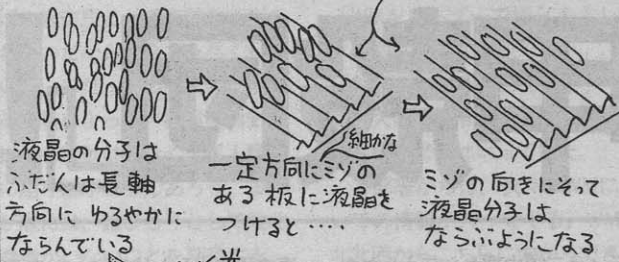 液晶の分子は
ふだんは長軸
方向に ゆるやかに
ならんでいる
細かな
一定方向にミゾの
ある板に液晶を
つけると‥‥
ミゾの向きにそって
液晶分子は
ならぶようになる
光